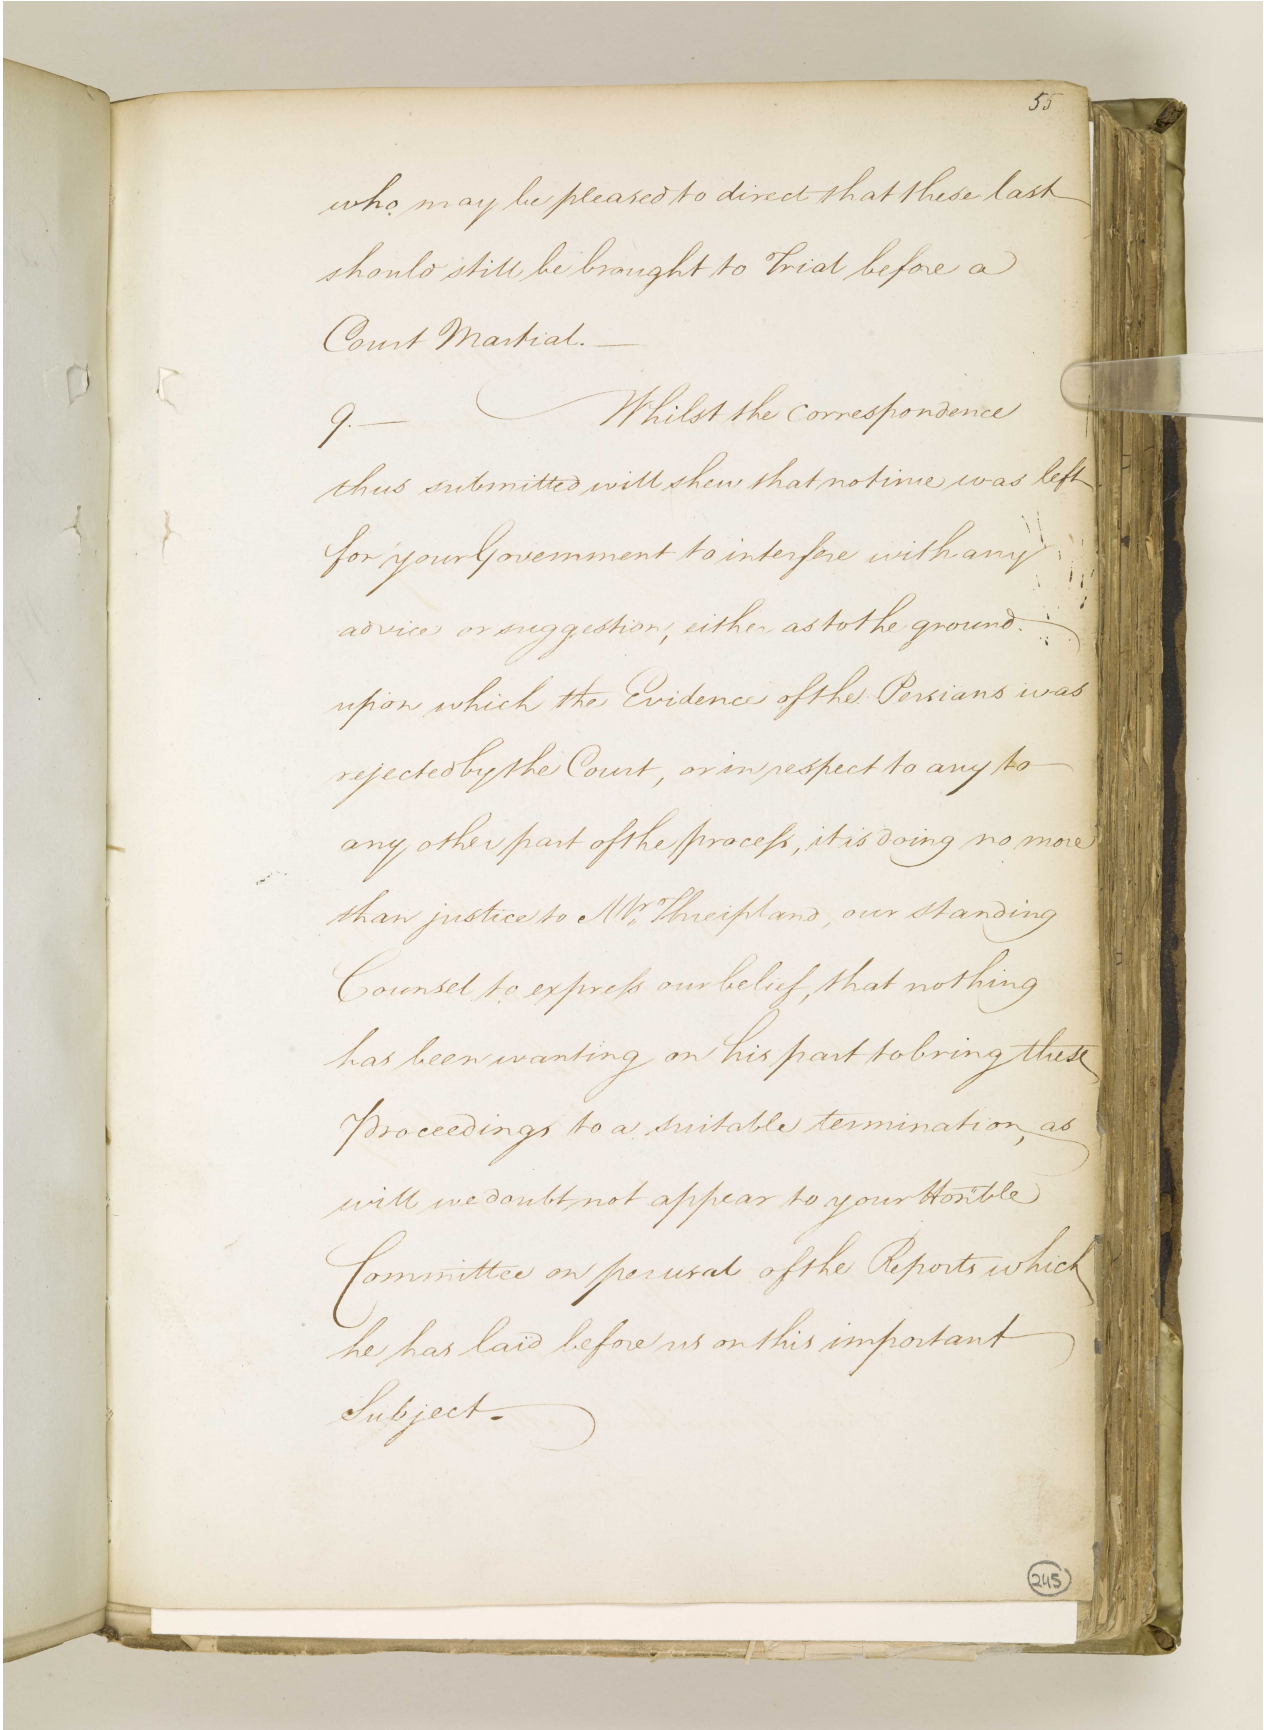 55
who may be pleased to direct that these last
should still be brought to Trial before a
Court Martial. —
9. — Whilst the Correspondence
thus submitted will shew that no time was left
for your Government to interfere with any
advice or suggestion, either as to the ground
upon which the Evidence of the Persians was
rejected by the Court, or in respect to any to
any other part of the process, it is doing no more
than justice to Mr. Threipland, our standing
Counsel to express our belief, that nothing
has been wanting on his part to bring these
Proceedings to a suitable termination, as
will we doubt not appear to your Honble
Committee on perusal of the Reports which
he has laid before us on this important
Subject.
245